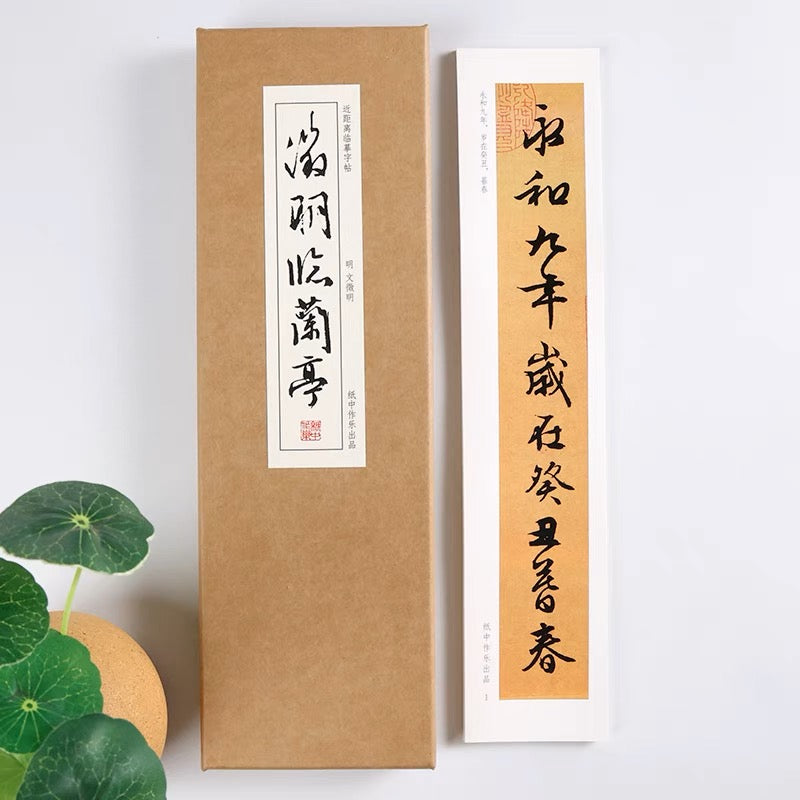 近距离临摹字帖
徵明临蘭亭
明 文徵明
纸中作乐出品
永和九年，岁在癸丑，暮春
永和九年歲在癸丑暮春
纸中作乐出品
1